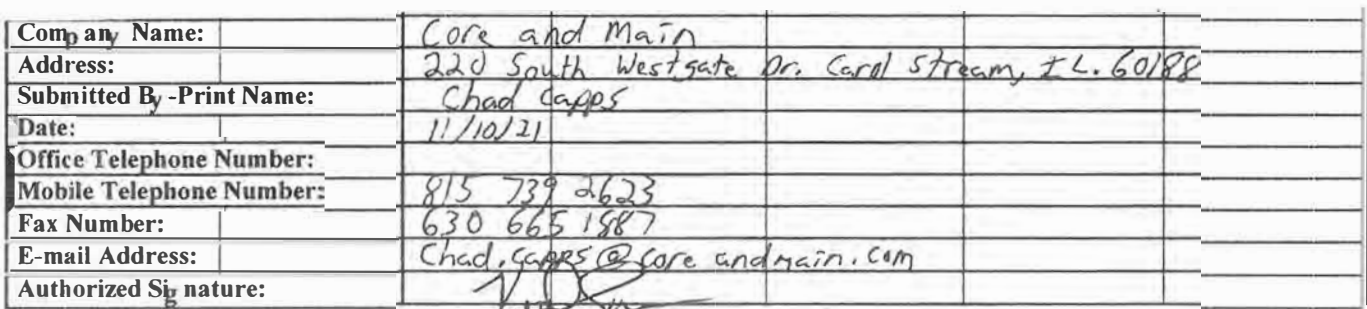 Company Name: Core and Main
Address: 220 South Westgate Dr. Carol Stream, IL. 60188
Submitted By -Print Name: Chad Capps
Date: 11/10/21
Office Telephone Number:
Mobile Telephone Number: 815 739 2623
Fax Number: 630 665 1887
E-mail Address: Chad.capps@coreandmain.com
Authorized Signature: